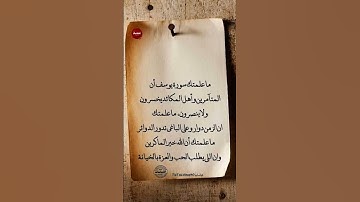 ما علمتك سورة يوسف أن
المتآمرين وأهل المكائد يخسرون
ولا ينصرون، ما علمتك
ان الزمن دوار وعلى الباغي تدور الدوائر
ما علمتك أن الله خير الماكرين
وان اللي يطلب الحب والعزة بالخيانة